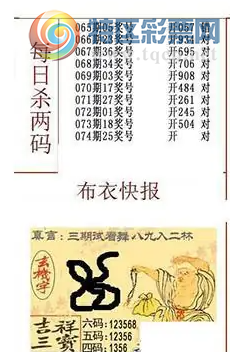 每日杀两码
065期05奖号 开057 错
067期36奖号 开695 对
068期34奖号 开706 对
069期03奖号 开908 对
070期17奖号 开484 对
071期27奖号 开261 对
072期01奖号 开245 对
073期18奖号 开504 对
074期25奖号 开 对
布衣快报
真言:三期试看舞八九入二杯
玄機字
吉三
祥寶
六码:123568
五码:12356
四码:1356